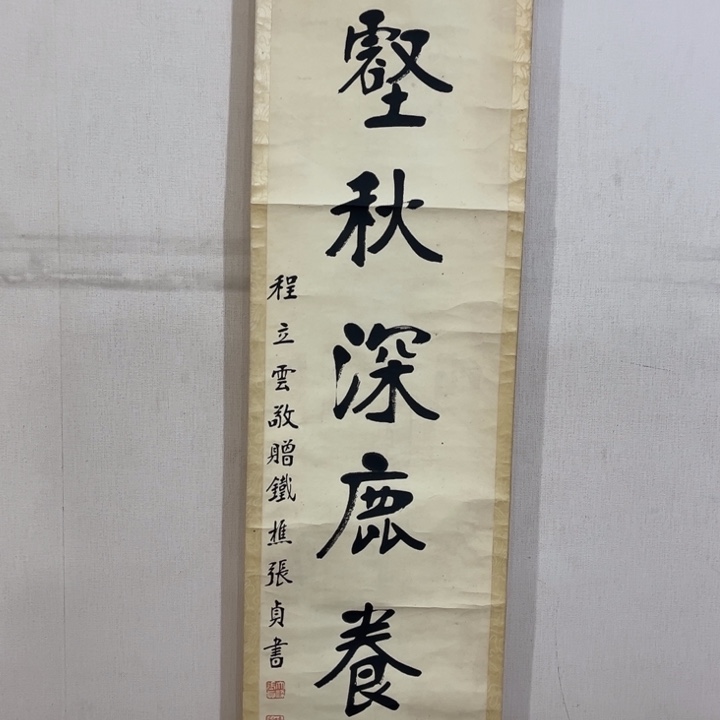 壑秋深鹿養
程立雲敬贈鐵樵張貞書